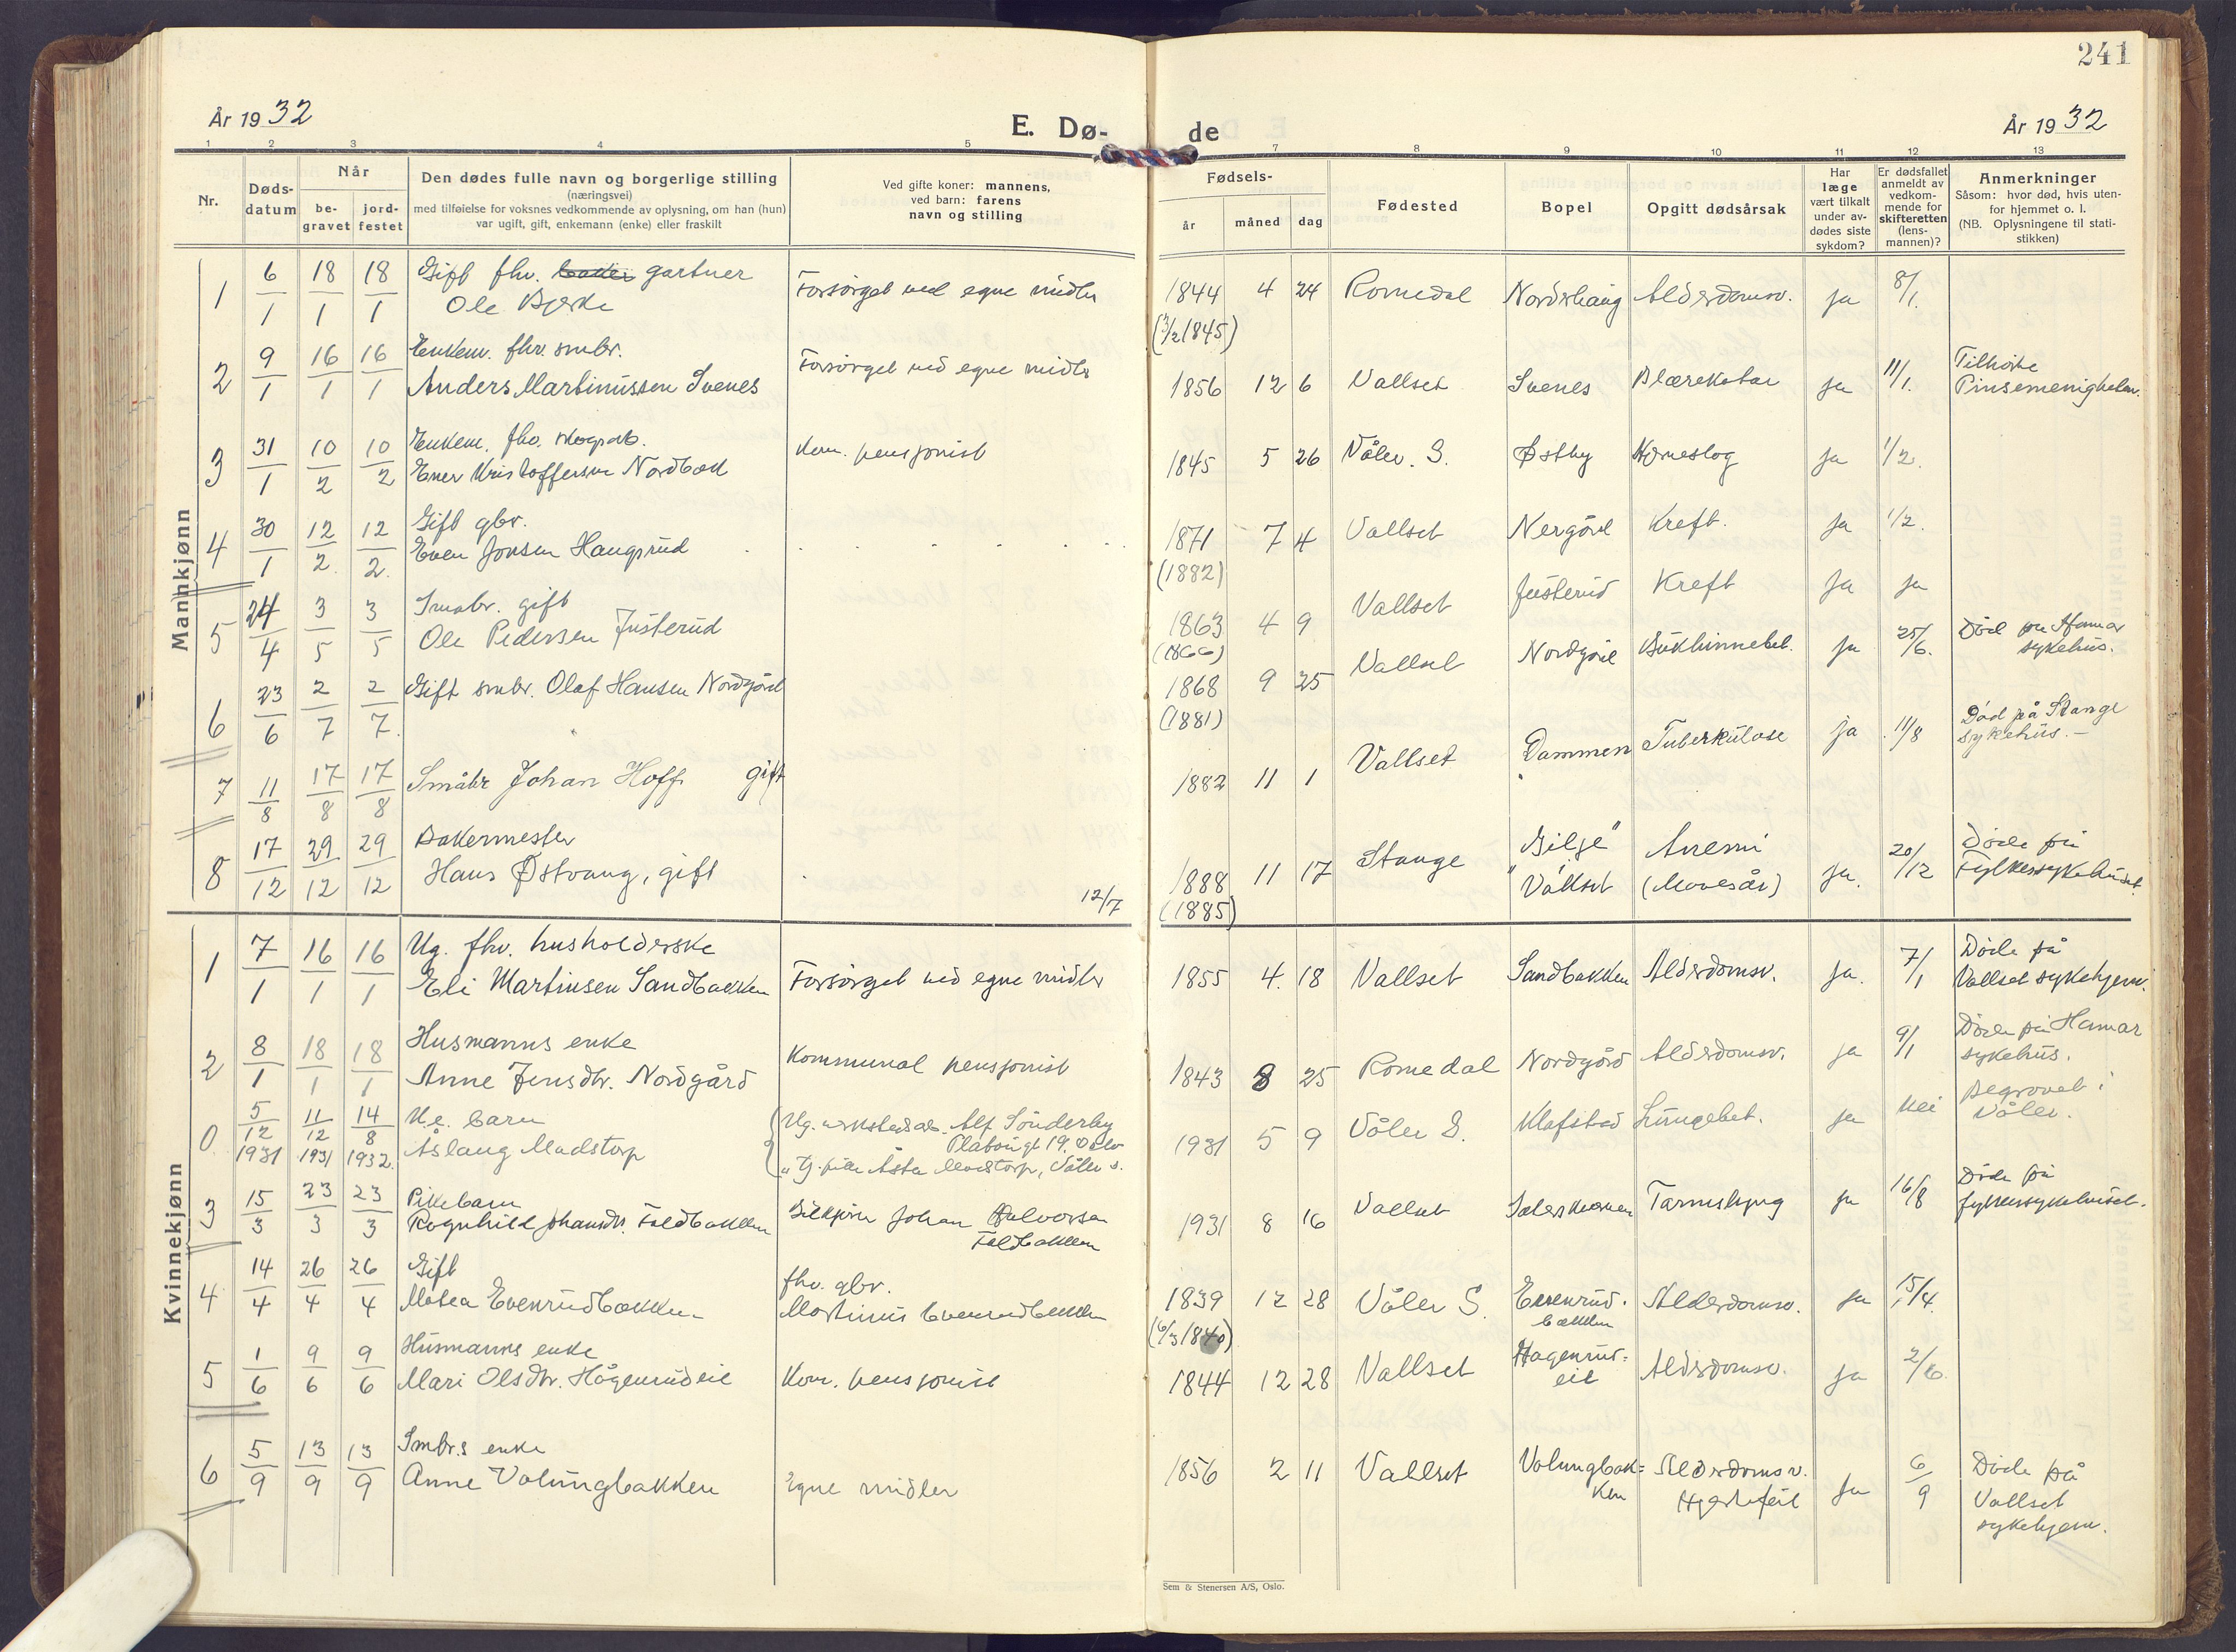 241
År 1932
E. Dø-
de
År 1932
1 2 3 4 5 7 8 9 10 11 12 13
Nr.
Døds-
datum
Når
be-
gravet
jord-
festet
Den dødes fulle navn og borgerlige stilling
(næringsvei)
med tilføielse for voksnes vedkommende av oplysning, om han (hun)
var ugift, gift, enkemann (enke) eller fraskilt
Ved gifte koner: mannens,
ved barn: farens
navn og stilling
Fødsels-
år måned dag
Fødested
Bopel
Opgitt dødsårsak
Har
læge
vært tilkalt
under av-
dødes siste
sykdom?
Er dødsfallet
anmeldt av
vedkom-
mende for
skifteretten
(lens-
mannen)?
Anmerkninger
Såsom: hvor død, hvis uten-
for hjemmet o. l.
(NB. Oplysningene til stati-
stikken)
Mannkjønn
1 6/1 18/1 18/1 Gift fhv. gartner
Ole Bjerke
Forsörget ved egne midler
1844 4 24 Romedal Nordshaug Alderdomsv. ja 8/1.
(3/2 1845)
2 9/1 16/1 16/1 Enkem. fhv. smbr.
Anders Martinussen Svenes
Forsörget ved egne midler
1856 12 6 Vallset Svenes Blærekatar ja 11/1.
Tilhörte
Pinsemenigheten.
3 31/1 10/2 10/2 Enkem. fhv. skogsarb.
Ener Kristoffersen Nordbæk
Kom. pensjonist
1845 5 26 Våler. S. Østby Hjerneslag ja 1/2.
4 30/1 12/2. 12/2. Gift gbr.
Even Jonsen Haugsrud
1871 7 4 Vallset Nergård Kreft. ja 1/2.
(1882)
5 24/4 3/5 3/5 Småbr. gift
Ole Pedersen Justerud
1863 4 9 Vallset Justerud Kreft ja ja
(1866)
6 23/6 2/7 2/7. Gift smbr. Olaf Hansen Nordgård
1868 9 25 Vallset Nordgård Bukhinnebet. ja 25/6.
Död på Hamar
sykehus.
(1881)
7 11/8 17/8 17/8 Småbr Johan Hoff gift
1882 11 1 Vallset Dammen Tuberkulose ja 11/8
Död på Stange
sykehus.-
8 17/12 29/12 29/12 Bakermester
Hans Østvang, gift
12/7
1888 11 17 Stange "Gilje"
Vallset
Anemi
(Mavesår)
ja. 20/12
Döde på
Fylkessykehuset.
(1885)
Kvinnekjønn
1 7/1 16/1 16/1 Ug. fhv. husholderske
Eli Martinsen Sandbakken
Forsörget ved egne midler
1855 4. 18 Vallset Sandbakken Alderdomsv. ja. 7/1
Döde på
Vallset sykehjem.
2 8/1 18/1 18/1 Husmanns enke
Anne Jensdtr. Nordgård
Kommunal pensjonist
1843 8 25 Romedal Nordgård Alderdomsv. ja 9/1
Döde på Hamar
sykehus.
0. 5/12 1931 11/12 1931 14/8 1932. U.e. barn
Åslaug Madstorp
Ug. verkstedarb. Alf Sönderby
19. Oslo
Åsta Madstorp, Våler s.
1931 5 9 Våler S. Klafstad Lungebet. ja nei
Begravet i
Våler.
3 15/3 23/3 23/3 Pikebarn
Ragnhild Johansdtr. Foldbakken
Johan Halvorsen
Foldbakken
1931 8 16 Vallset Tarmslyng ja 16/8
Döde på
fylkessykehuset.
4 14/4 26/4 26/4 Gift
Matea Evenrudbakken
fhv. gbr.
Martinus Evenrudbakken
1839 12 28 Våler S. Evenrud-
bakken
Alderdomsv. ja 15/4.
(6/3 1840)
5 1/6 9/6 9/6 Husmanns enke
Mari Olsdtr. Hågenrudeie
Kom. pensjonist
1844 12 28 Vallset Hagenrud=
eie
Alderdomsv. ja 2/6.
6 5/9 13/9 13/9 Smbr.s enke
Anne Volungbakken
Egne midler
1856 2 11 Vallset Volungbak=
ken
Alderdomsv.
Hjertefeil
ja 6/9
Döde på
Vallset
sykehjem.
Sem & Stenersen A/S, Oslo.